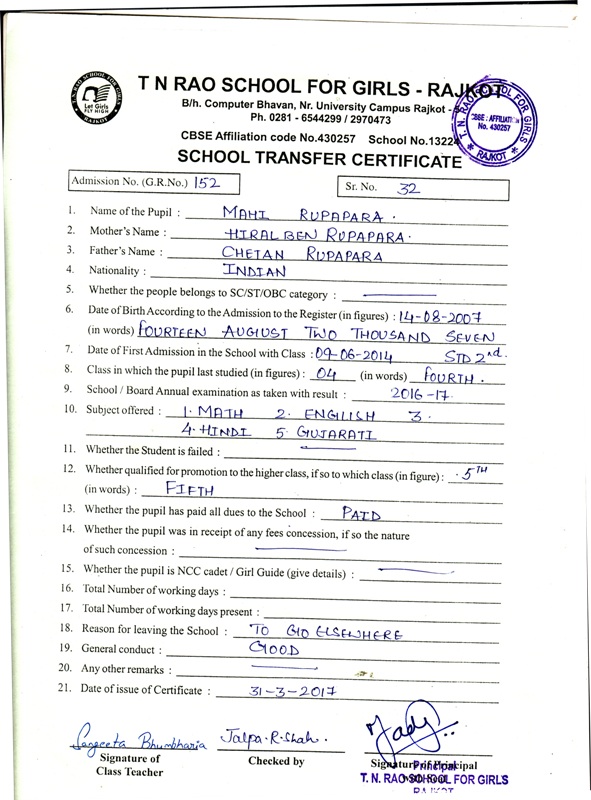 T. N. RAO SCHOOL FOR GIRLS
Let Girls
FLY HIGH
RAJKOT
T N RAO SCHOOL FOR GIRLS - RAJKOT
B/h. Computer Bhavan, Nr. University Campus Rajkot -
Ph. 0281 - 6544299 / 2970473
CBSE Affiliation code No.430257 School No.13224
T. N. RAO SCHOOL FOR GIRLS
CBSE : AFFILIATION
No. 430257
RAJKOT
SCHOOL TRANSFER CERTIFICATE
Admission No. (G.R.No.) 152
Sr. No. 32
1. Name of the Pupil : MAHI RUPAPARA.
2. Mother's Name : HIRALBEN RUPAPARA.
3. Father's Name : CHETAN RUPAPARA
4. Nationality : INDIAN
5. Whether the people belongs to SC/ST/OBC category :
6. Date of Birth According to the Admission to the Register (in figures) : 14-08-2007
(in words) FOURTEEN AUGUST TWO THOUSAND SEVEN
7. Date of First Admission in the School with Class : 09-06-2014 STD 2nd.
8. Class in which the pupil last studied (in figures) : 04 (in words) FOURTH.
9. School / Board Annual examination as taken with result : 2016-17.
10. Subject offered : 1. MATH 2. ENGLISH 3.
4. HINDI 5. GUJARATI
11. Whether the Student is failed :
12. Whether qualified for promotion to the higher class, if so to which class (in figure) : 5TH
(in words) : FIFTH
13. Whether the pupil has paid all dues to the School : PAID
14. Whether the pupil was in receipt of any fees concession, if so the nature
of such concession :
15. Whether the pupil is NCC cadet / Girl Guide (give details) :
16. Total Number of working days :
17. Total Number of working days present :
18. Reason for leaving the School : TO GO ELSEWHERE
19. General conduct : GOOD
20. Any other remarks :
21. Date of issue of Certificate : 31-3-2017
Sageeta Bhumbharia
Jalpa.R.Shah.
Signature of
Class Teacher
Checked by
Signature of Principal
Principal
T. N. RAO SCHOOL FOR GIRLS
RAJKOT